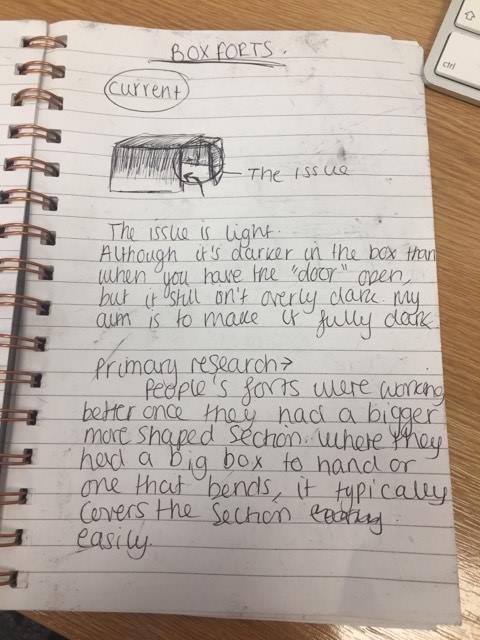 BOX FORTS.
current
The issue
The issue is light.
Although it's darker in the box than
when you have the "door" open,
but it still isn't overly dark. my
aim is to make it fully dark.
Primary research→
People's forts were working
better once they had a bigger
more shaped section. Where they
had a big box to hand or
one that bends, it typically
covers the section
easily.
ctrl